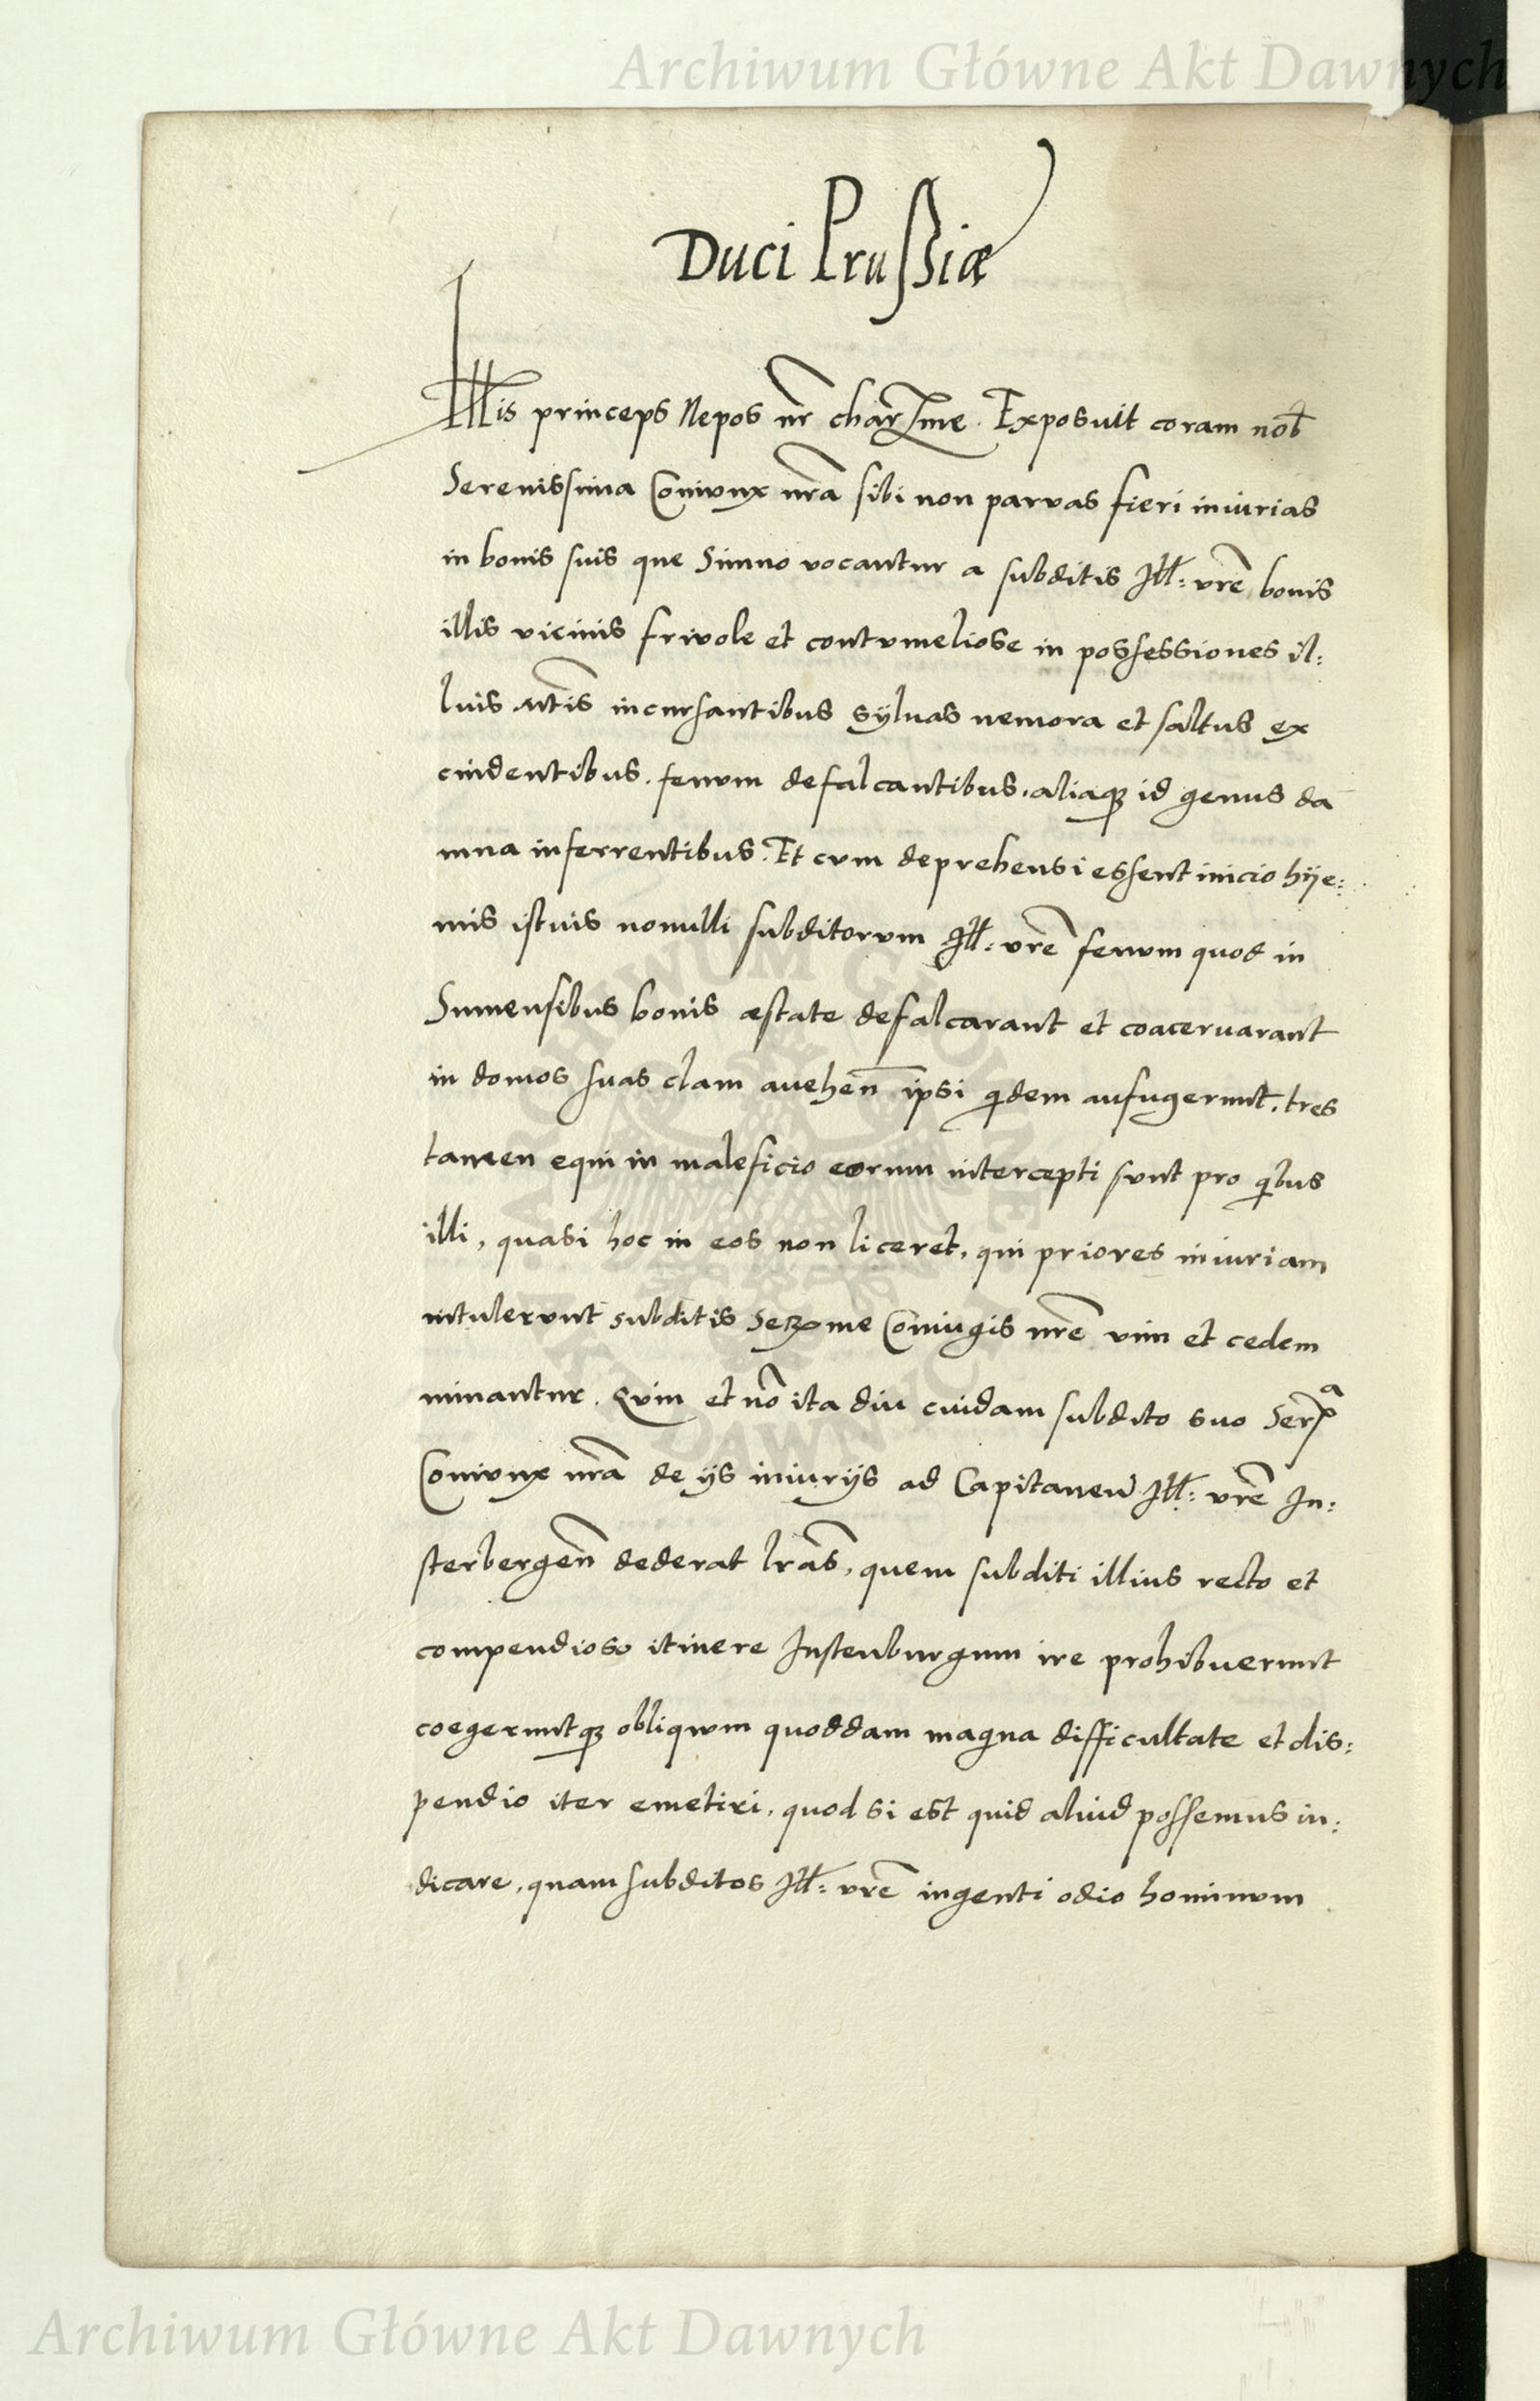 Archiwum Główne Akt Dawnych
Duci Prußiæ
Illis princeps Nepos nr̃ charme. Exposuit coram nob̃
Serenissima Coniunx nrã sibi non parvas fieri iniurias
in bonis suis que Simno vocantur a subditis Ill: vrẽ bonis
illis vicinis frivole et contumeliose in possessiones il:
lius incursantibus sÿlvas nemora et saltus ex
cindentibus. fenum defalcantibus. aliaq; id genus da
mna inferrentibus. Et cum deprehensi essent inicio hÿe:
mis istius nonulli subditorum Ill: vrẽ fenum quod in
Simnensibus bonis æstate defalcarant et coacervarant
in domos suas clam avehen̄ ipsi qidem aufugerunt. tres
tamen equi in maleficio eorum intercepti sunt pro qibus
illi, quasi hoc in eos non liceret, qui priores iniuriam
intulerunt subditis Serme Coniugis nrẽ vim et cedem
minantur. Quin et nõ ita diu cuidam subdito suo Serᵃ
Coniunx nrã de ijs iniurijs ad Capitaneũ Ill: vrẽ In:
sterbergeñ dederat lrãs, quem subditi illius recto et
compendioso itinere Instenburgum ire prohibuerunt
coegeruntq; obliqum quoddam magna difficultate et dis:
pendio iter emetiri, quod si est quid aliud possemus iu:
dicare, quam subditos Ill: vrẽ ingenti odio hominum
Archiwum Główne Akt Dawnych